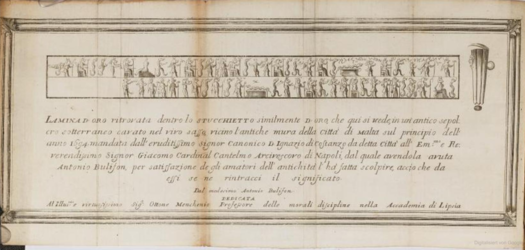 LAMINA D'ORO ritrovata dentro lo STVCCHIETTO similmente D'oro, che qui si vede, in un antico sepol
cro sotterraneo cavato nel vivo sasso vicino l'antiche mura della Città di Malta sul principio dell'
anno 1694. mandata dall'eruditissimo Signor Canonico D. Ignazio di Costanzo da detta Città all' Em.mo e Re
verendissimo Signor Giacomo Cardinal Cantelmo Arcivescovo di Napoli, dal quale avendola avuta
Antonio Bulifon, per satisfazione degli amatori dell' antichità l'ha fatta scolpire, acciò che da
essi se ne rintracci il significato
Dal medesimo Antonio Bulifon
DEDICATA
Al Illus.mo e virtuosissimo Sig.r Ottone Menchenio Professore delle morali discipline nella Accademia di Lipsia